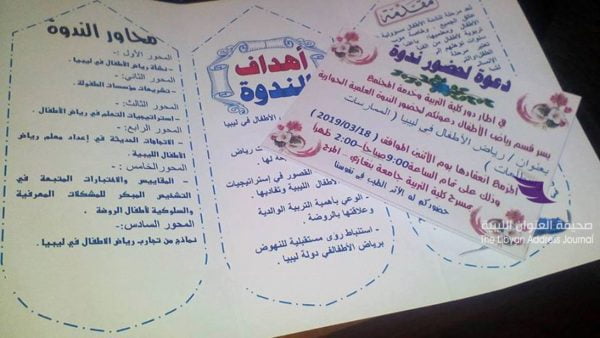 مقدمة
دعوة لحضور ندوة
في إطار دور كلية التربية وخدمة المجتمع
يسر قسم رياض الأطفال دعوتكم لحضور الندوة العلمية الحوارية
بعنوان / رياض الأطفال في ليبيا ( الممارسات
المزمع انعقادها يوم الاثنين الموافق ( 2019/03/18 )
وذلك على تمام الساعة 9:00 صباحا-2:00 ظهرا
مسرح كلية التربية جامعة بنغازي - المرج
حضوركم له الأثر الطيب في نفوسنا
أهداف
الندوة
القصور في استراتيجيات
الأطفال الليبية وتفاديها .
- الوعي بأهمية التربية الوالدية
وعلاقتها بالروضة .
- استنباط رؤى مستقبلية للنهوض
برياض الأطفال في دولة ليبيا .
محاور الندوة
المحور الأول :-
- نشأة رياض الأطفال في ليبيا .
المحور الثاني :-
- تشريعات مؤسسات الطفولة .
المحور الثالث:-
- استراتيجيات التعلم في رياض الأطفال .
المحور الرابع:-
- الاتجاهات الحديثة في إعداد معلم رياض
الأطفال الليبية .
المحور الخامس:-
- المقاييس والاختبارات المتبعة في
التشخيص المبكر للمشكلات المعرفية
والسلوكية لأطفال الروضة .
المحور السادس:-
نماذج من تجارب رياض الأطفال في ليبيا .
صحيفة العنوان الليبية
The Libyan Address Journal